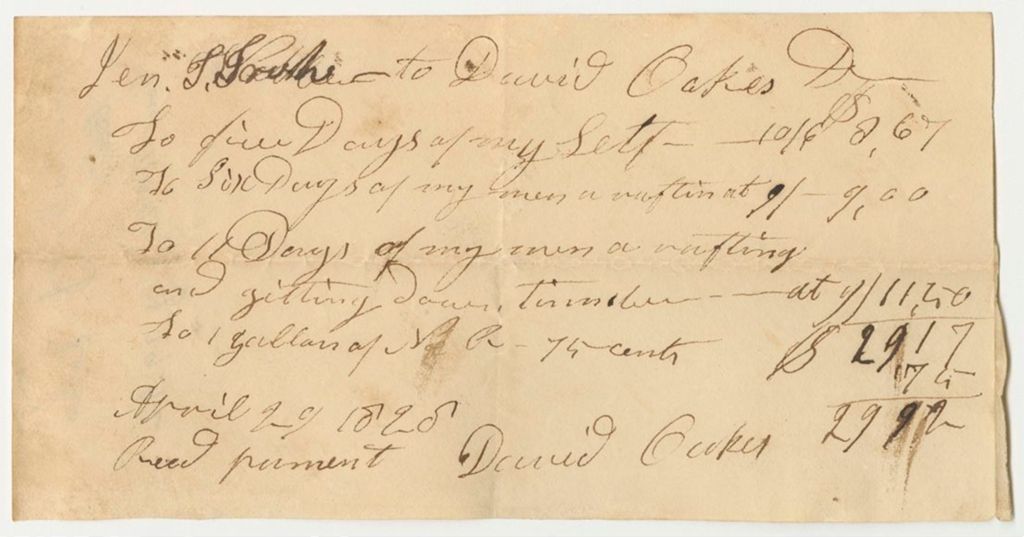 to David Oakes Dr
To five Days of my Self 10/6 $8,67
To Six Days of my men a raftin at 9/ 9,00
To 11 Days of my men a rafting
and gitting down timber at 9/ 11,50
To 1 gallon of N R 75 cents $ 2917
75
April 29 1828 2992
Recd pament David Oakes